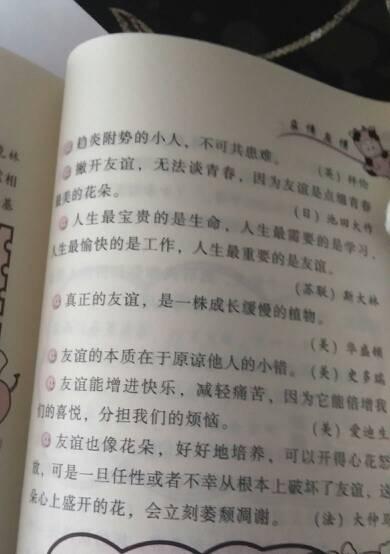 趋炎附势的小人，不可共患难。
（英）拜伦
撇开友谊，无法谈青春，因为友谊是点缀青春
最美的花朵。
（日）池田大作
人生最宝贵的是生命，人生最需要的是学习，
人生最愉快的是工作，人生最重要的是友谊。
（苏联）斯大林
真正的友谊，是一株成长缓慢的植物。
（美）华盛顿
友谊的本质在于原谅他人的小错。（美）史多瑞
友谊能增进快乐，减轻痛苦，因为它能倍增我
们的喜悦，分担我们的烦恼。
（美）爱迪生
友谊也像花朵，好好地培养，可以开得心花怒
放，可是一旦任性或者不幸从根本上破坏了友谊，这
朵心上盛开的花，会立刻萎颓凋谢。（法）大仲马
林
相
基